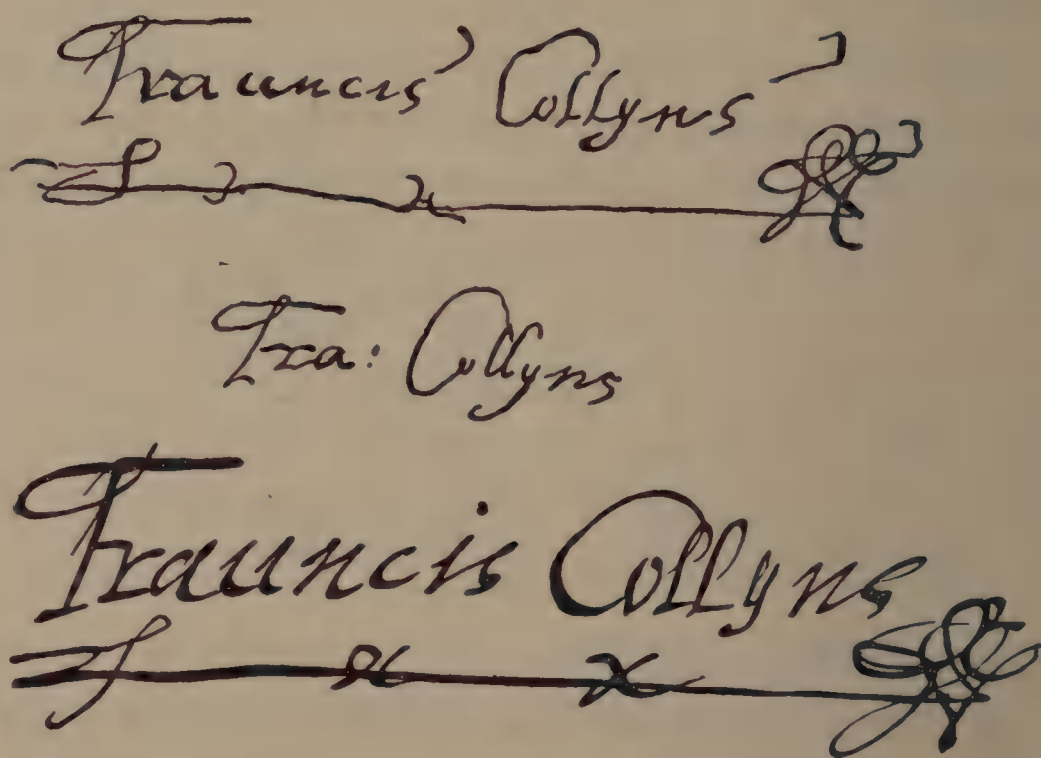 Frauncis Collyns
Fra: Collyns
Frauncis Collyns